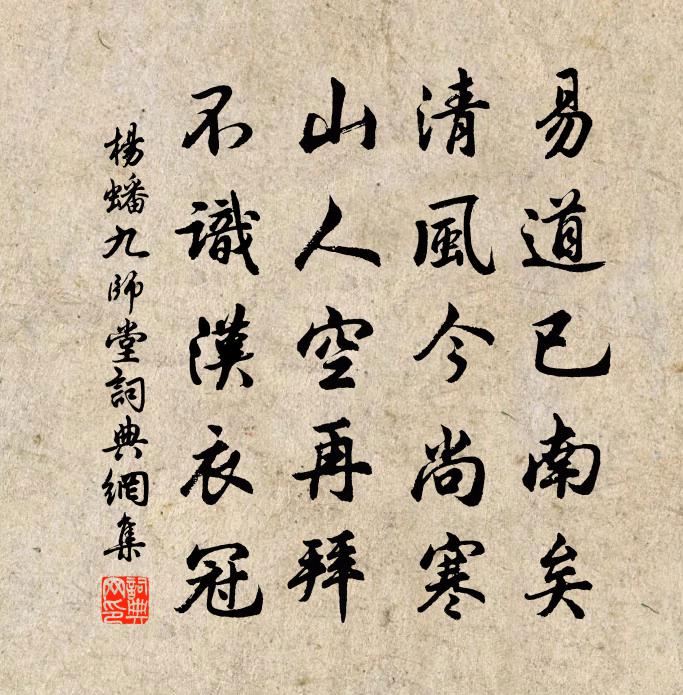 易道已南矣
清風今尚寒
山人空再拜
不識漢衣冠
楊蟠九師堂詞典網集
詞典网印